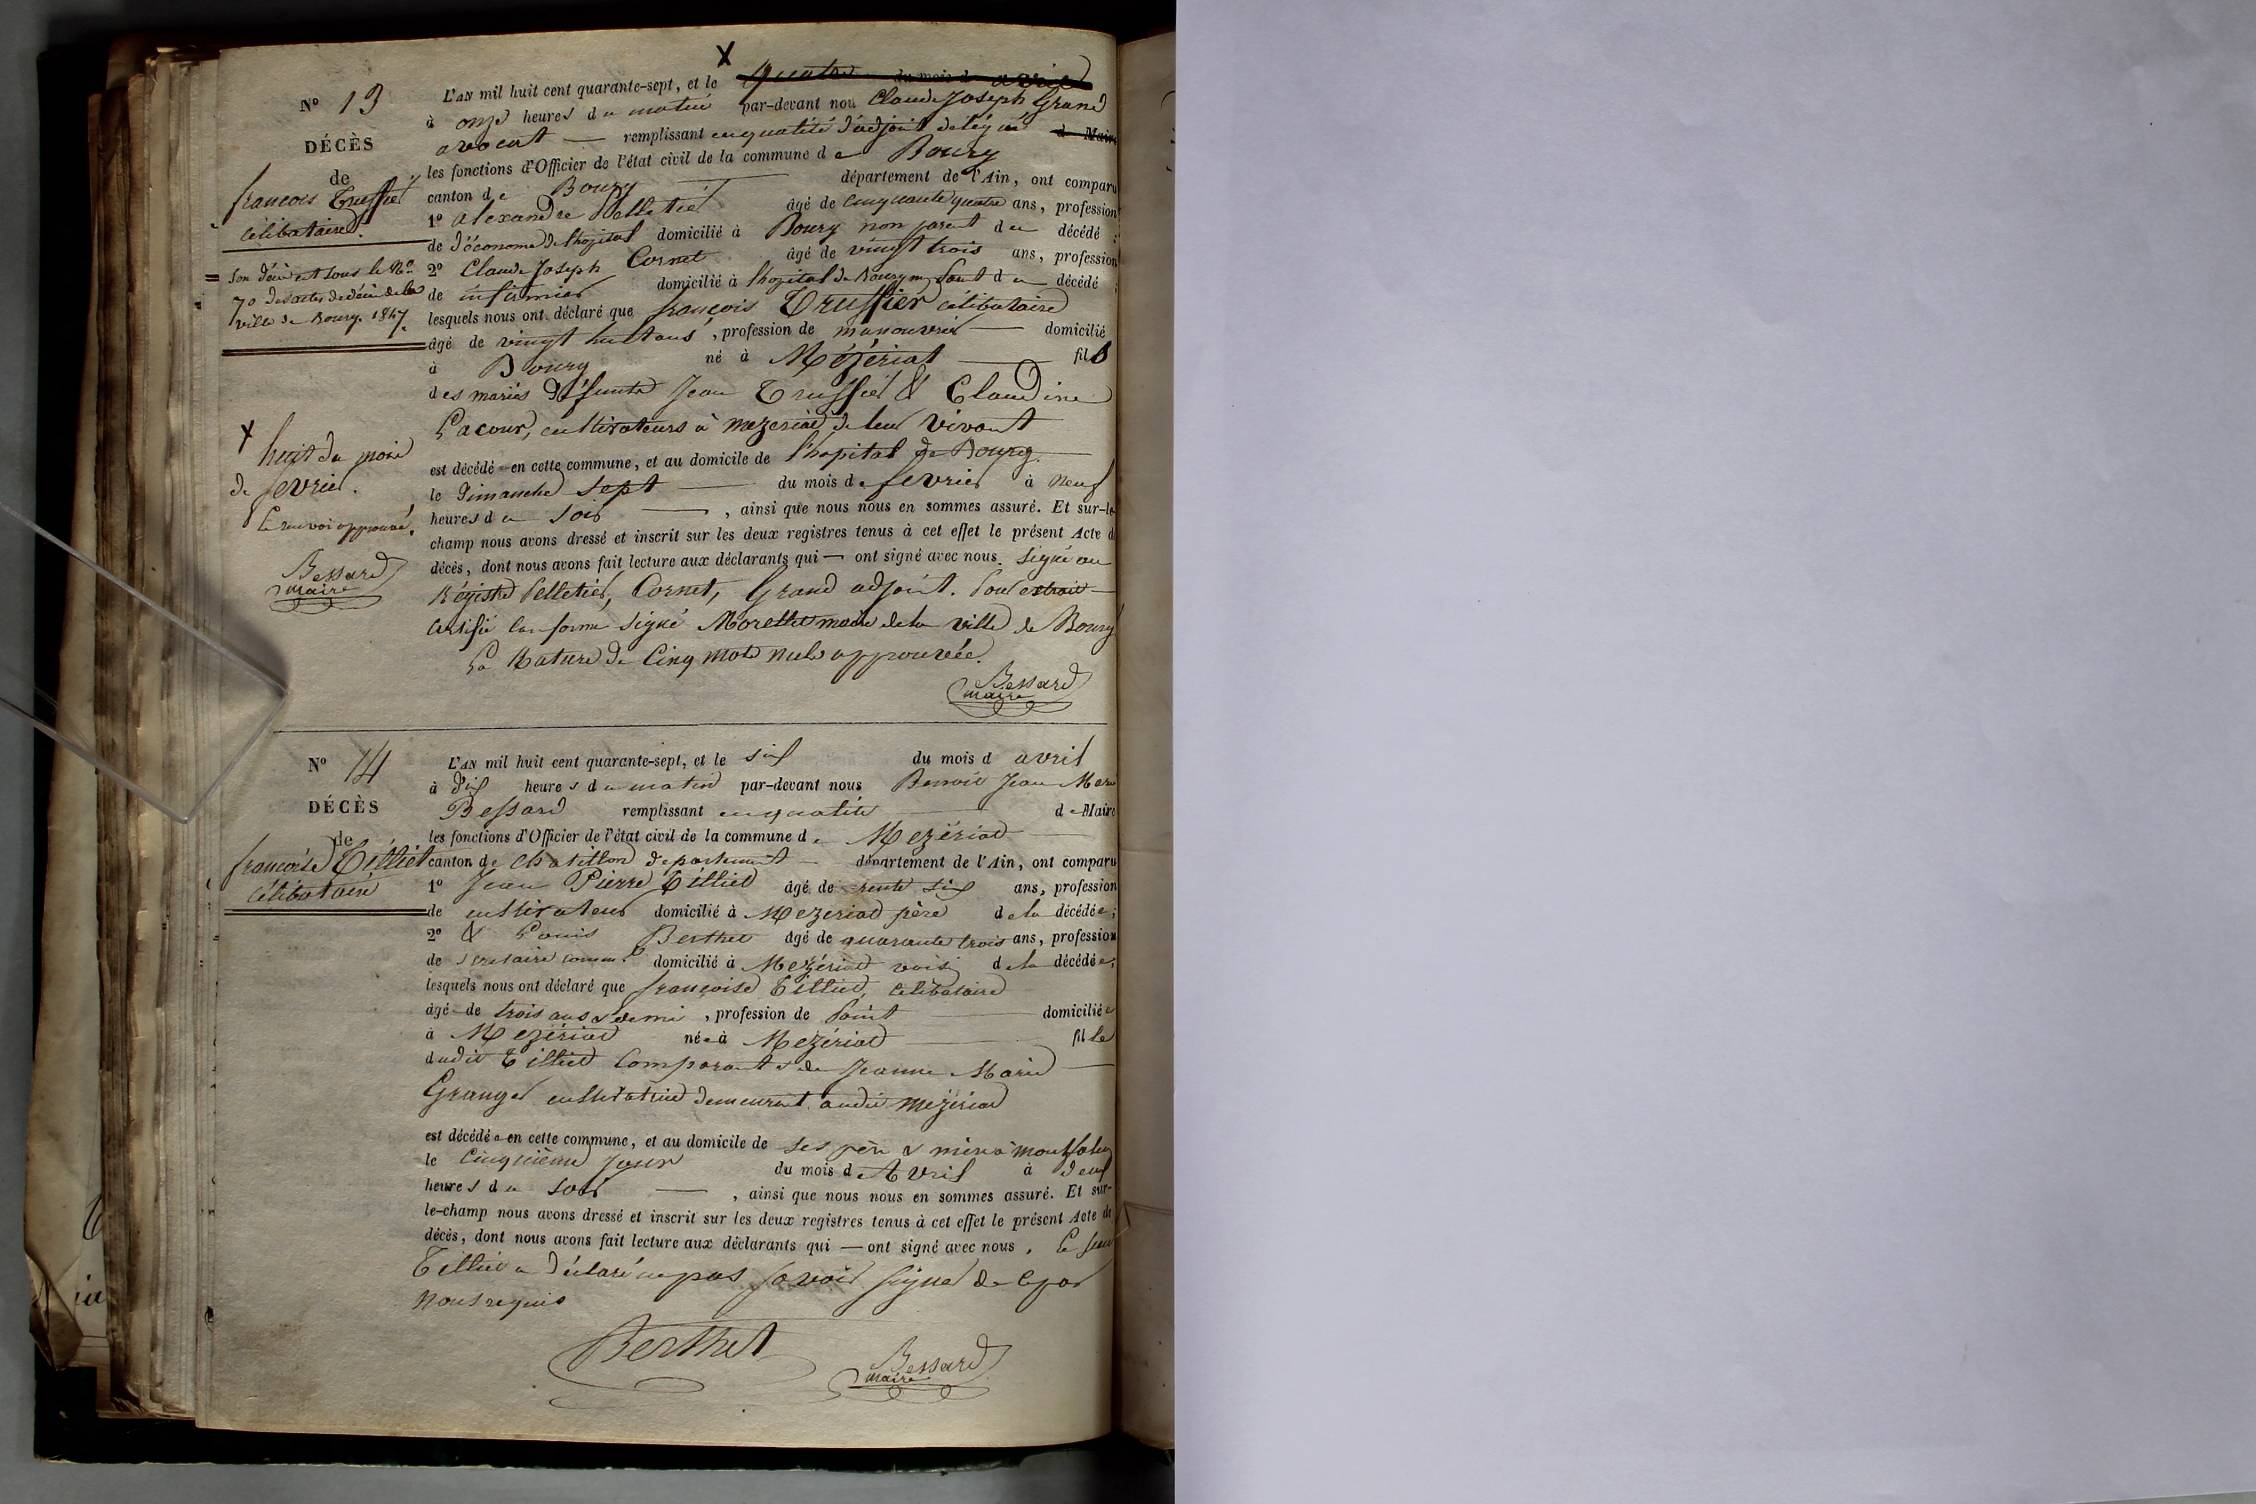 N° 13
DÉCÈS
de
françois Truffier
célibataire.
= Son décès est sous le N°
70 des actes de décès de la
ville de Bourg. 1847.
X
huit du mois
de fevrier.
le renvoi approuvé.
Bessard
maire
X
L'AN mil huit cent quarante-sept, et le quatre du mois d avril
à onze heures du matin par-devant nou Claude Joseph Grand
avocat — remplissant en qualité d'adjoint délégué d Maire
les fonctions d'Officier de l'état civil de la commune de Bourg
canton de Bourg — département de l'Ain, ont comparu
1° alexandre Pelletier âgé de cinquante quatre ans, profession
de d'économe de l'hopital domicilié à Bourg non parent du décédé ;
2° Claude Joseph Cornet âgé de vingt trois ans, profession
de infirmier domicilié à l'hopital de Bourg du décédé ;
lesquels nous ont déclaré que françois Truffier célibataire
âgé de vingt huit ans, profession de manouvrier — domicilié
à Bourg né à Mézériat — fils
des mariés défunts Jean Truffier & Claudine
Lacour, cultivateurs à mezeriat de leur vivant
est décédé en cette commune, et au domicile de l'hopital de Bourg.
le Dimanche sept — du mois de fevrier à neuf
heures du soir — , ainsi que nous nous en sommes assuré. Et sur-le-
champ nous avons dressé et inscrit sur les deux registres tenus à cet effet le présent Acte d
décès, dont nous avons fait lecture aux déclarants qui — ont signé avec nous. Signé au
Régistre Pelletier, Cornet, Grand adjoint. Pour extrait —
certifié conforme signé Morellet maire de la ville de Bourg
La Rature de Cinq mots nuls approuvée.
Bessard
maire
N° 14
DÉCÈS
de
françoise Tillier
célibataire
L'AN mil huit cent quarante-sept, et le six du mois d avril
à dix heures du matin par-devant nous Benoit Jean Marie
Bessard remplissant en qualité — de Maire
les fonctions d'Officier de l'état civil de la commune de Mezériat —
canton de chatillon département — département de l'Ain, ont comparu
1° Jean Pierre Tillier âgé de trente six ans, profession
de cultivateur domicilié à Mezeriat père de la décédée ;
2° & Louis Berthet âgé de quarante trois ans, profession
de secretaire comm.l domicilié à Mezériat voisin de la décédée ;
lesquels nous ont déclaré que françoise Tillier, célibataire
âgé de trois ans & demi , profession de point — domiciliée
à Mezériat née à Mezériat — fille
dudit Tillier Comparant & de Jeanne Marie —
Granger cultivatrice demeurant audit mezériat
est décédée en cette commune, et au domicile de ses père & mère à
le cinquième jour du mois d Avril à deux
heures du soir — , ainsi que nous nous en sommes assuré. Et sur-
le-champ nous avons dressé et inscrit sur les deux registres tenus à cet effet le présent Acte de
décès, dont nous avons fait lecture aux déclarants qui — ont signé avec nous, le sieur
Tillier a déclaré ne pas savoir signer de ce par
nous requis
Berthet
Bessard
maire